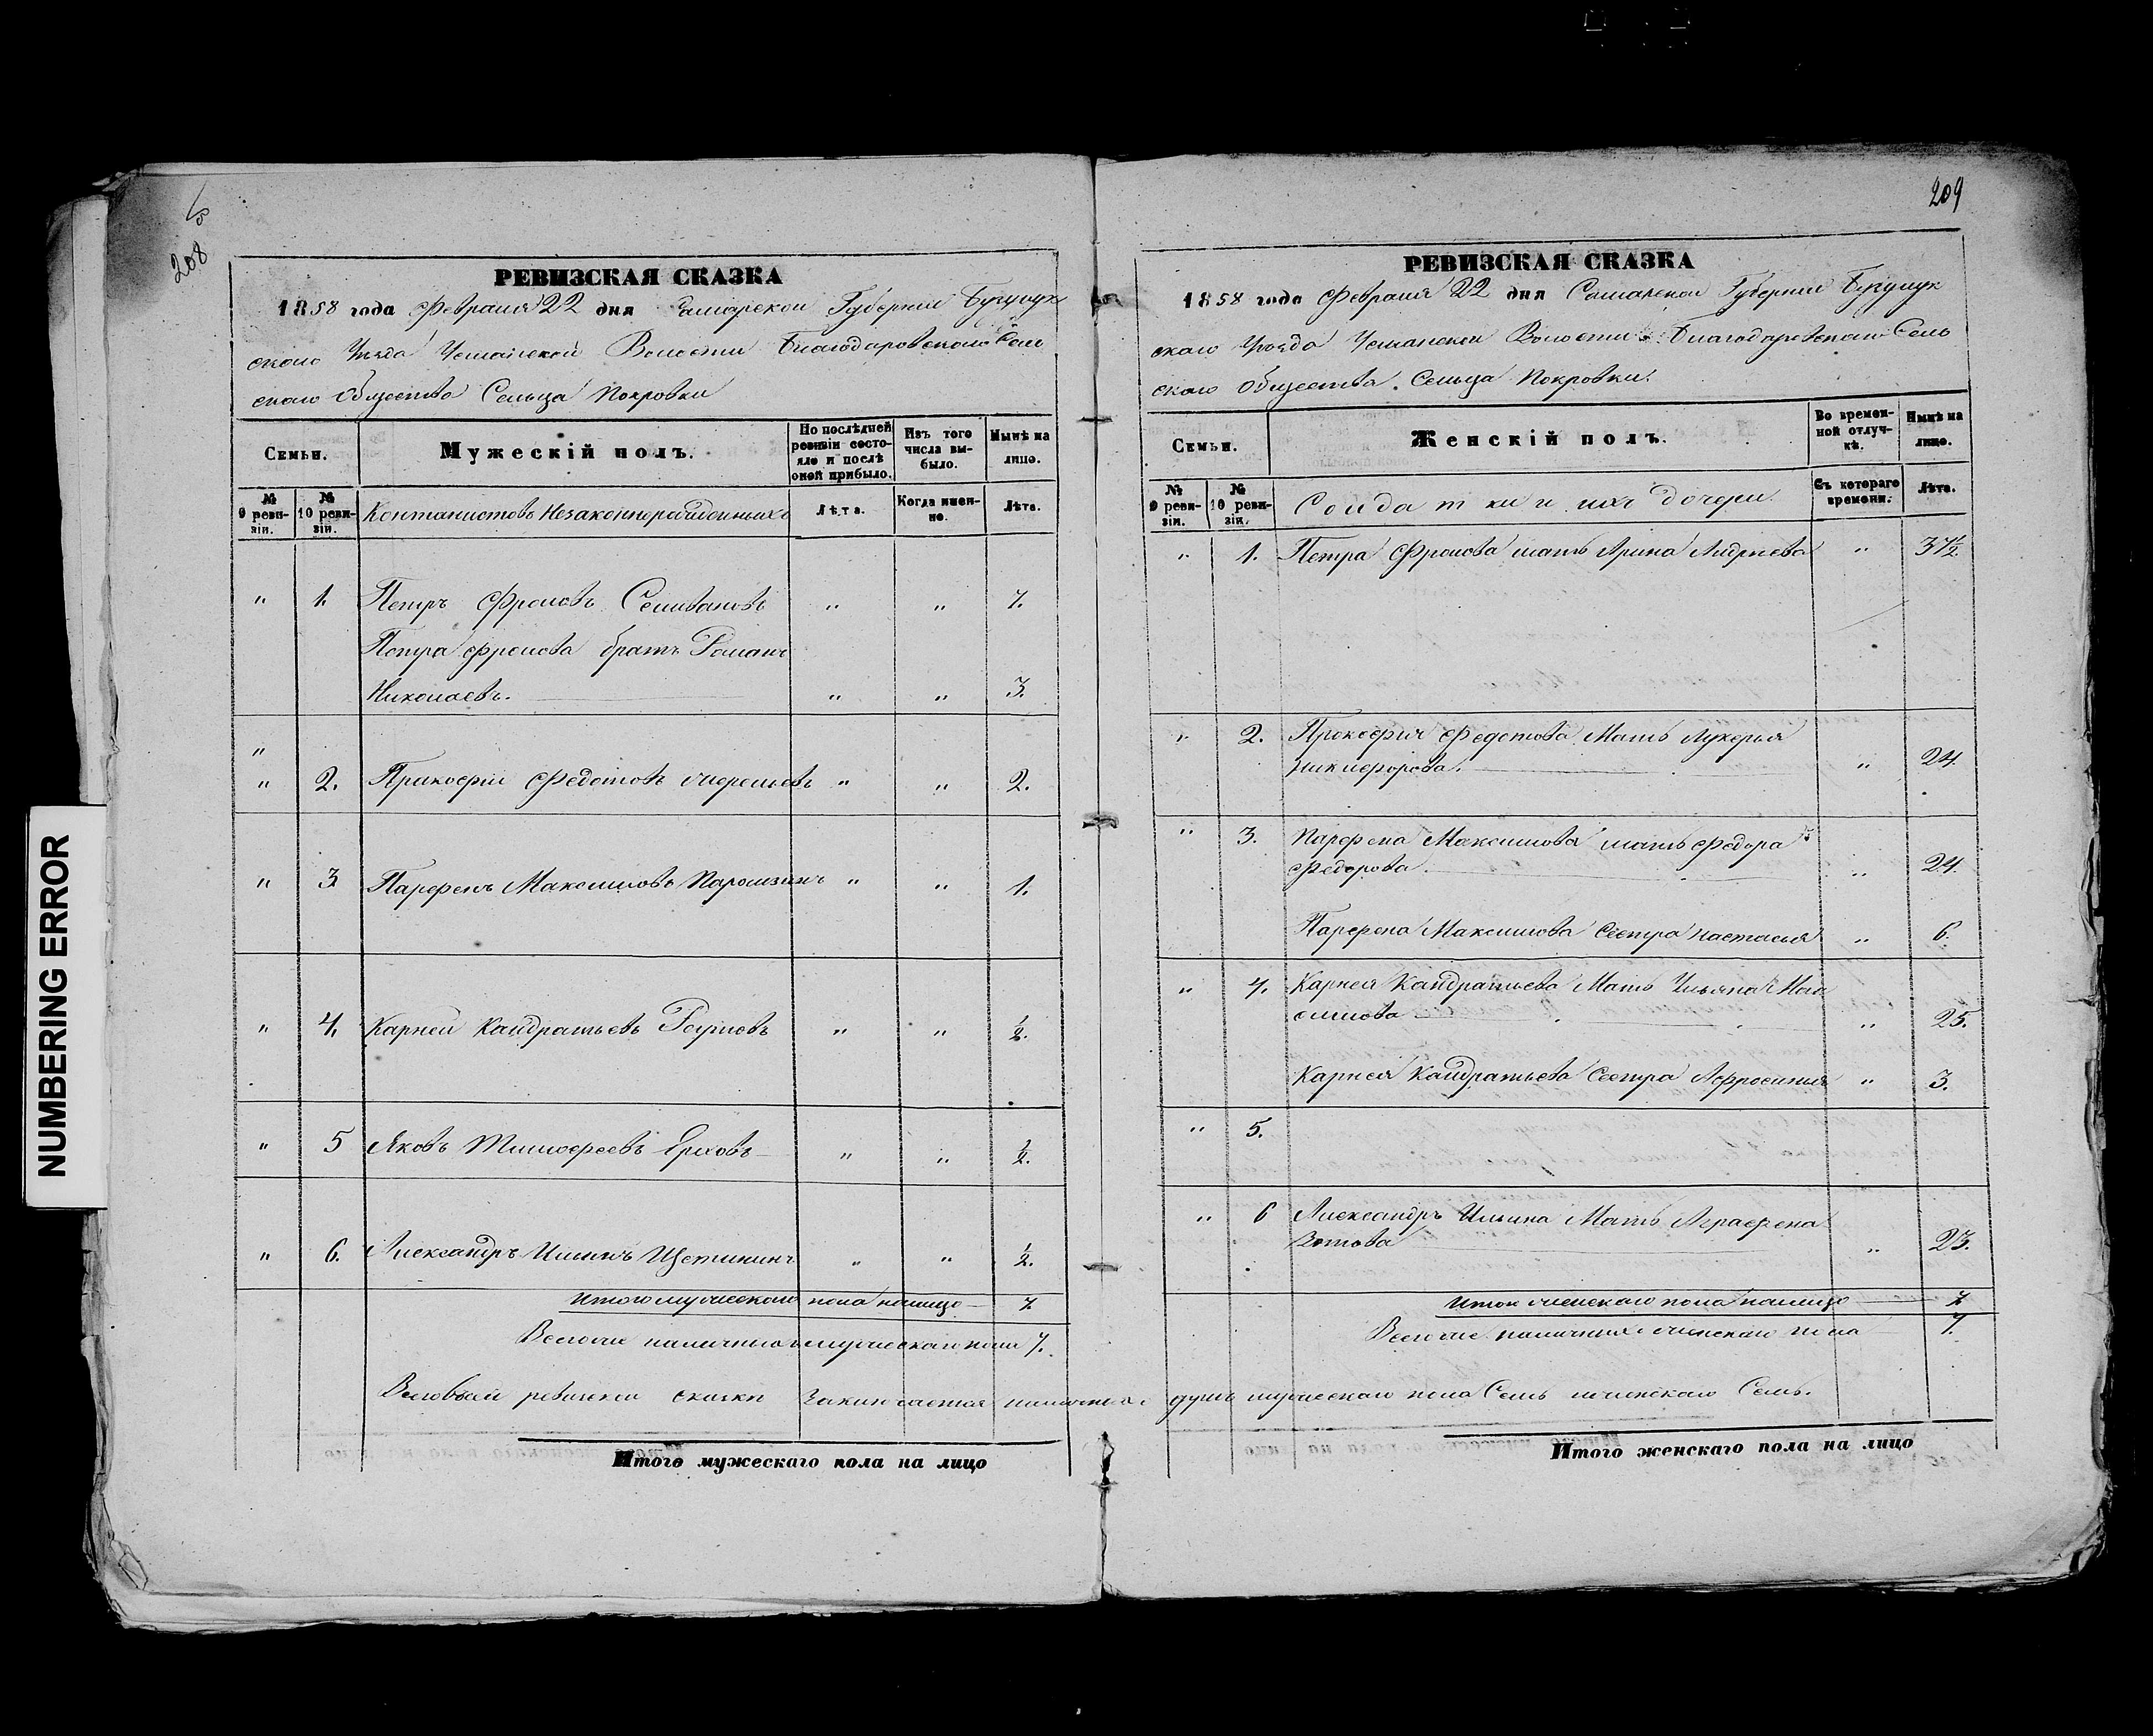 208
РЕВИЗСКАЯ СКАЗКА
1858 года Февраля 22 дня Самарской Губернии Бузулук
скаго Уезда Усманской Волости Благодаровскаго Сель
скаго Общества Сельца Покровки
Семьи.
Мужескій полъ.
По послѣдней ревизіи состояло и послѣ оной прибыло.
Изъ того числа выбыло.
Нынѣ на лицо.
№ 9 ревизіи.
№ 10 ревизіи.
Контанистовъ Незаконнорожденныхъ
Лѣта.
Когда именно.
Лѣта.
" 1. Петръ Фроловъ Селивановъ " " 7.
Петра Фролова братъ Романъ
Николаевъ. " " 3.
"
" 2. Пракофій Федотовъ " " 2.
" 3 Парфенъ Максимовъ " " 1.
" 4. Карней Кандратьевъ " " ½.
" 5 Яковъ Тимофеевъ Ерховъ " " ½.
" 6. Александръ Ильинъ Щетининъ " " ½.
Итого мужескаго пола налицо 7
Всего же наличныхъ мужескаго пола 7.
Итого мужескаго пола на лицо
209
РЕВИЗСКАЯ СКАЗКА
1858 года Февраля 22 дня Самарской Губернии Бузулук
скаго Уезда Усманской Волости Благодаровскаго Сель
скаго Общества Сельца Покровки.
Семьи.
Женскій полъ.
Во временной отлучкѣ.
Нынѣ на лицо.
№ 9 ревизіи.
№ 10 ревизіи.
Солдатки и ихъ дочери.
Съ котораго времени.
Лѣта.
" 1. Петра Фролова мать Арина Андреева " 37½
" 2. Прокофия Федотова Мать Лукерья
Никифорова. " 24.
" 3. Парфена Максимова мать Федора
Федорова. " 24.
Парфена Максимова Сестра Настасья " 6.
" 4. Карнея Кандратьева Мать Ульяна Мак
симова " 25.
Карнея Кандратьева Сестра Афросинья " 3.
" 5.
" 6 Александръ Ильина Мать Аграфена
Зотова " 23.
Итого женскаго пола налицо 7
Всего же наличныхъ женскаго пола 7.
Всего в сей ревизской сказки Заключается наличныхъ душъ мужескаго пола Семь женскаго Семь.
Итого женскаго пола на лицо
NUMBERING ERROR